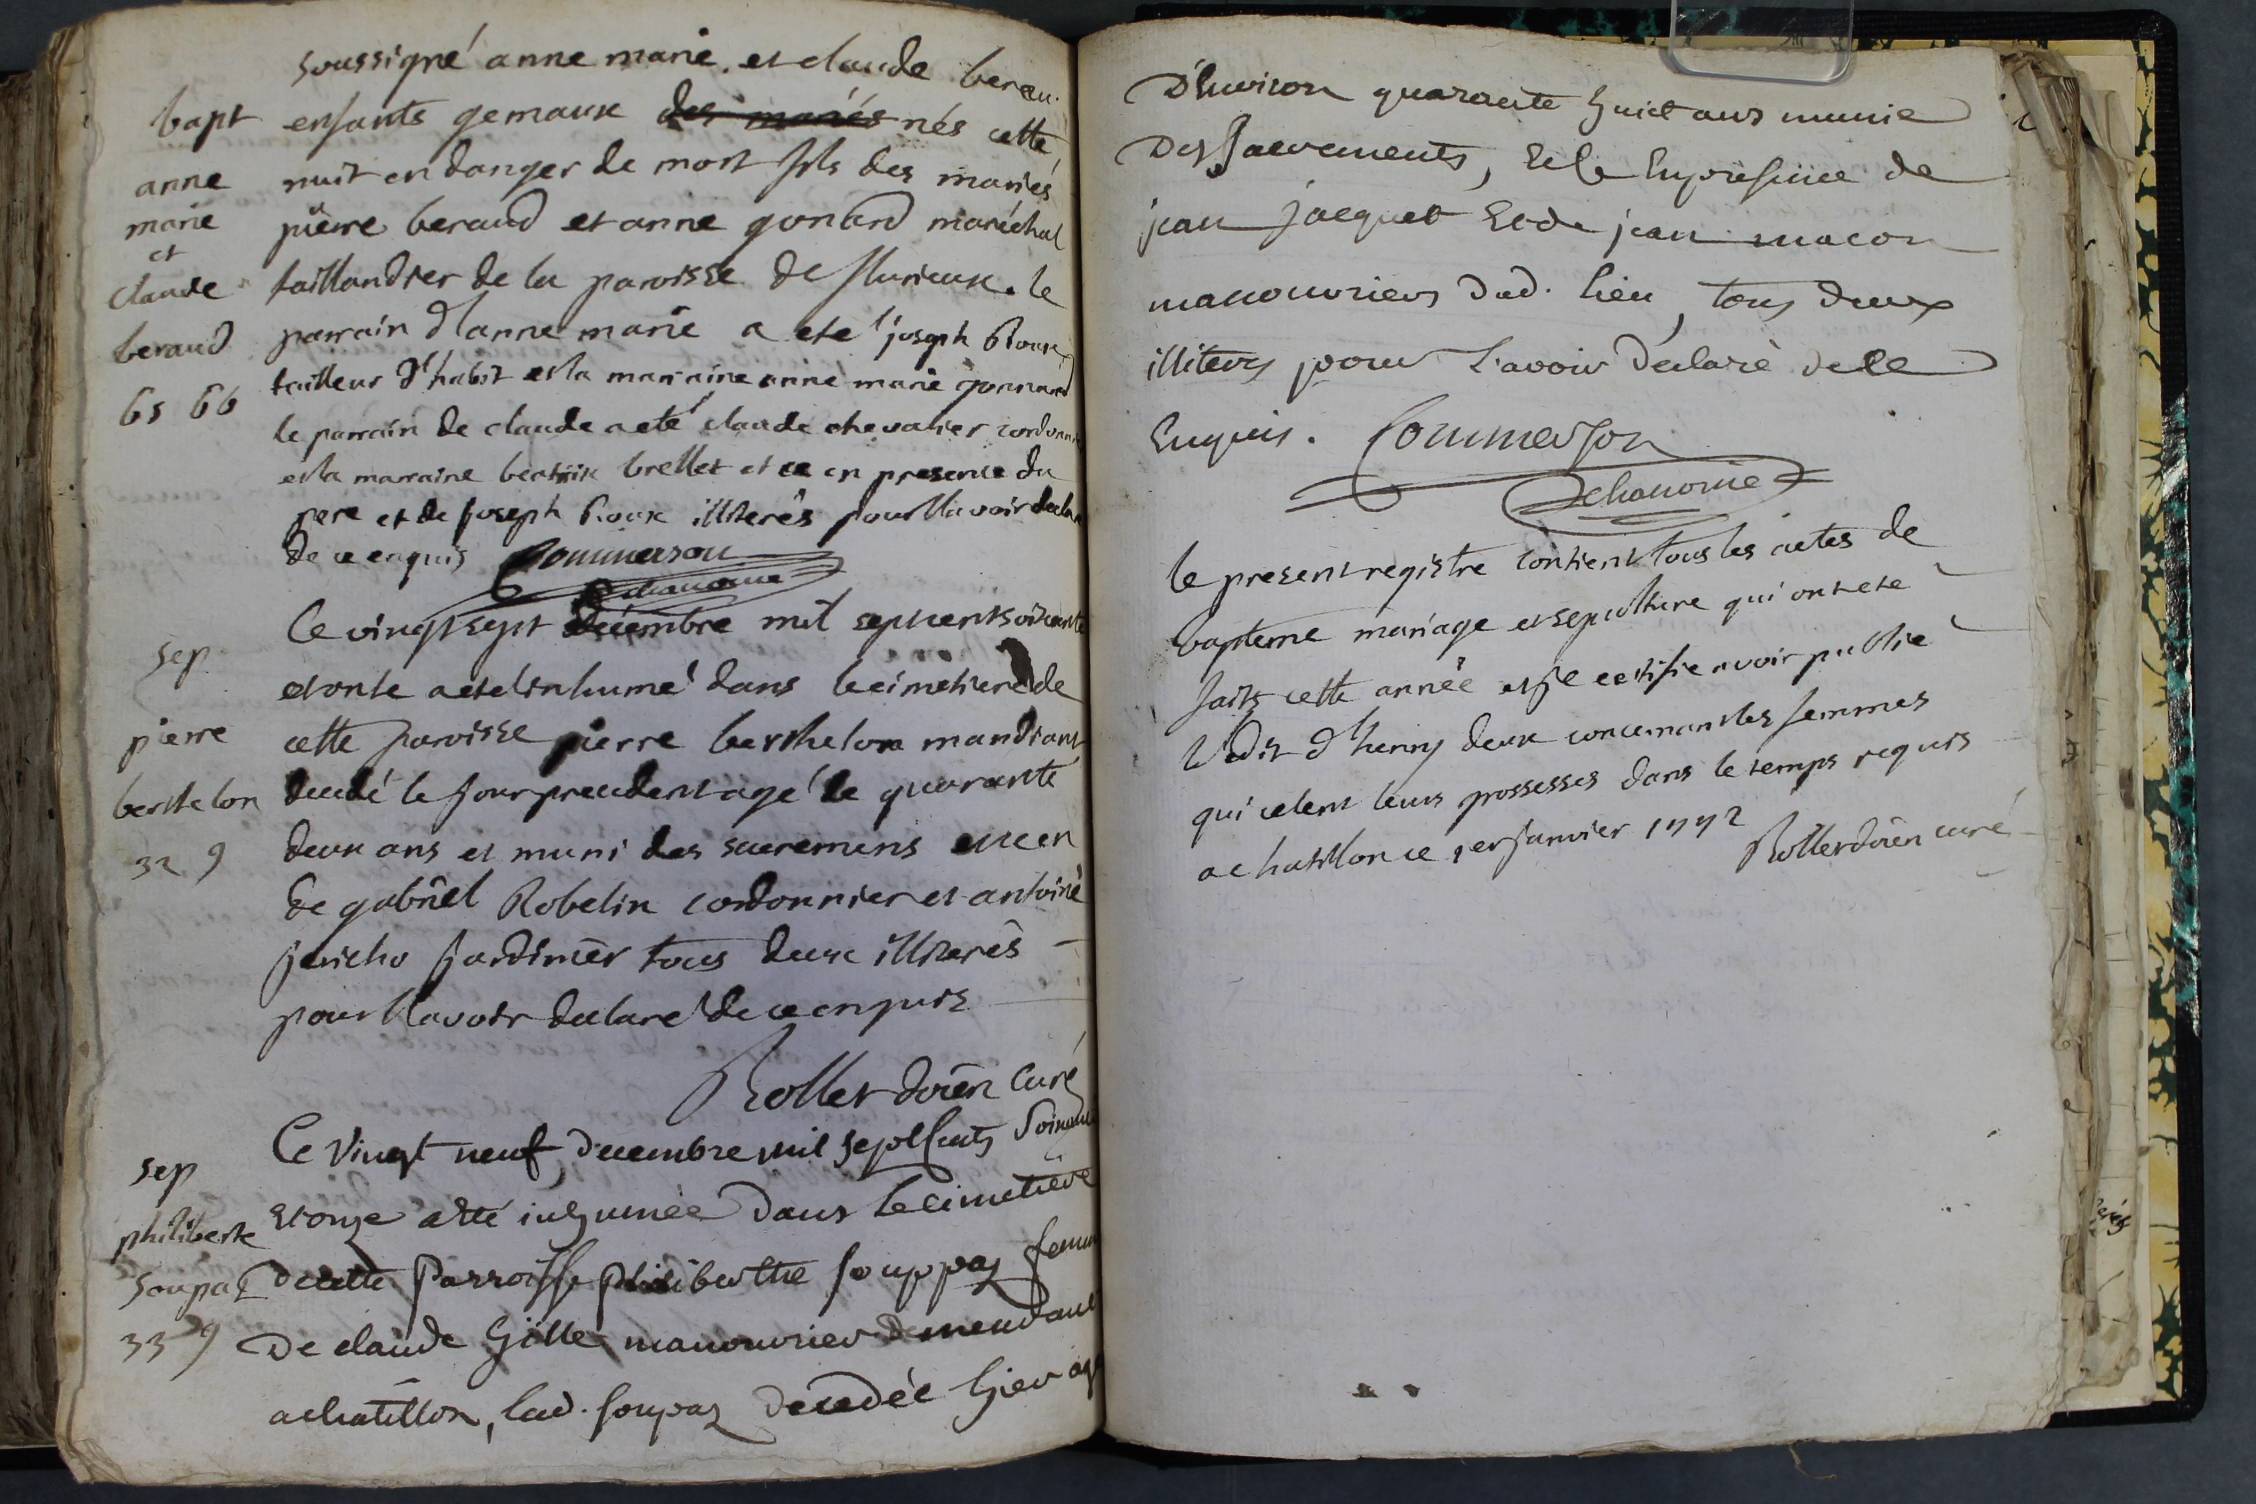 soussigné anne marie et claude berau
bapt
anne
marie
et
claude
beraud
65 66
enfants gemaux des mariés nés cette
nuit en danger de mort fils des mariés
pierre beraud et anne gonard maréchal
taillandier de la paroisse de flurieux. le
parrain d'anne marie a eté joseph Roux
tailleur d'habit et la marraine anne marie gonnard
le parrain de claude a eté claude chevalier cordonn
et la marraine beatrix brellet et ce en presence du
pere et de joseph Roux illiterés pour l'avoir declar
de ce enquis Commerson
chanoine
sep
pierre
berthelon
32 9
Ce vingt sept décembre mil sept cent soixante
et onze a eté inhumé dans le cimetiere de
cette paroisse pierre berthelon mandiant
decedé le jour precedent agé de quarante
deux ans et muni des sacremens et ce en
de gabriel Robelin cordonnier et antoine
jericho jardinier tous deux illiterés
pour l'avoir declaré de ce enquis
Rollet doïen curé
sep
philiberte
soupaz
33 9
Ce vingt neuf decembre mil sept cents soixante
et onze a eté inhumée dans le cimetiere
de cette parroisse philiberthe souppaz femm
De claude gille manouvrier demeurant
a chatillon, lad. soupaz decedée hier ag
D'environ quarante huict ans munie
Des sacrements, et ce en presence de
jean jacquet et de jean macon
manouvriers dud. lieu, tous deux
illiterés pour l'avoir declaré de ce
Enquis. Commerson
chanoine
le present registre contient tous les actes de
bapteme mariage et sepulture qui ont eté
faits cette année et je certifie avoir publié
l'edit d'henry deux concernant les femmes
qui celent leurs grossesses dans le temps requis
a chatillon ce 1er janvier 1772 Rollet doïen curé